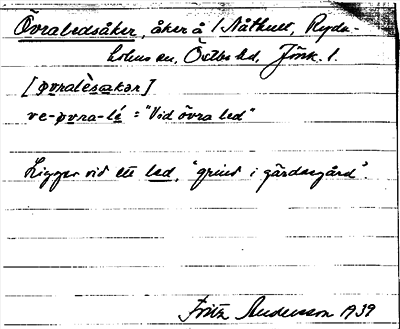 Övraledsåker, åker å 1 Nåthult, Ryda-
holms sn, Östbo hd, Jönk. l.
[øvralèsakər]
ve-øvra-lé = "Vid övra led"
Ligger vid ett led, "grind i gärdesgård".
Fritz Andersson 1939